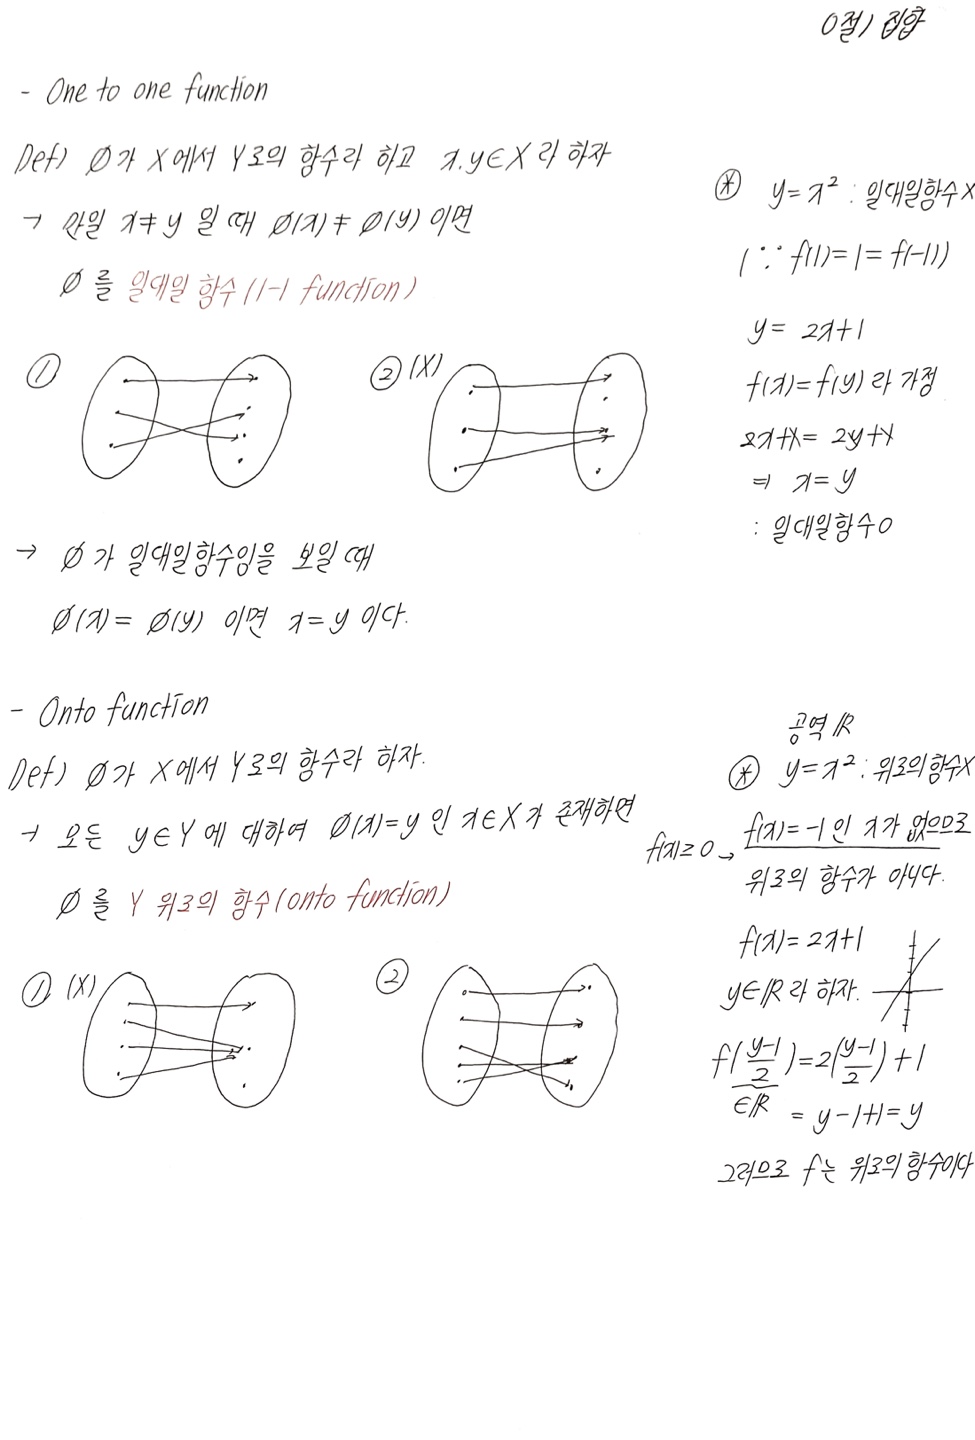 0절) 집합
- One to one function
Def) ∅가 X에서 Y로의 함수라 하고 x.y∈X 라 하자
→ 만일 x≠y 일 때 ∅(x)≠∅(y) 이면
∅를 일대일 함수(1-1 function)
① ② (X)
→ ∅가 일대일함수임을 보일 때
∅(x)=∅(y) 이면 x=y 이다.
⊛ y=x² : 일대일함수X
(∵ f(1)=1=f(-1))
y=2x+1
f(x)=f(y)라 가정
2x+1=2y+1
⇒ x=y
: 일대일함수O
- Onto function
Def) ∅가 X에서 Y로의 함수라 하자.
→ 모든 y∈Y에 대하여 ∅(x)=y인 x∈X가 존재하면
∅를 Y 위로의 함수(onto function)
① (X) ②
공역 ℝ
⊛ y=x² : 위로의함수X
f(x)≥0 → f(x)=-1인 x가 없으므로
위로의 함수가 아니다.
f(x)=2x+1
y∈ℝ라 하자.
f((y-1)/2)=2((y-1)/2)+1
∈ℝ = y-1+1=y
그러므로 f는 위로의함수이다